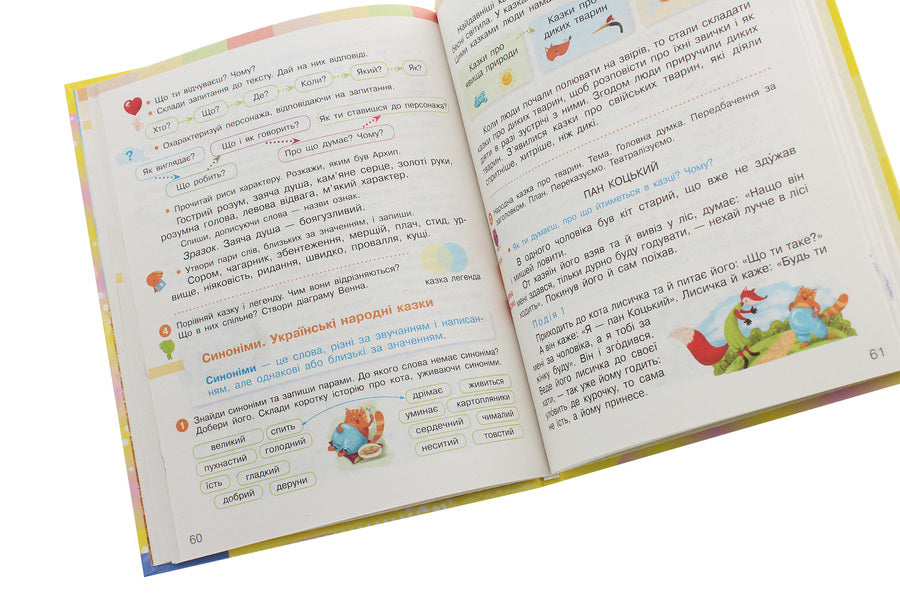 Що ти відчуваєш? Чому?
Склади запитання до тексту. Дай на них відповіді.
Хто?
Що?
Де?
Коли?
Який?
Як?
Охарактеризуй персонажа, відповідаючи на запитання.
Як виглядає?
Що і як говорить?
Як ти ставишся до персонажа?
Що робить?
Про що думає? Чому?
Прочитай риси характеру. Розкажи, яким був Архип.
Гострий розум, заяча душа, кам'яне серце, золоті руки,
розумна голова, левова відвага, м'який характер.
Спиши, дописуючи слова — назви ознак.
Зразок. Заяча душа — боягузливий.
Утвори пари слів, близьких за значенням, і запиши.
Сором, чагарник, збентеження, мерщій, плач, стид, ур-
вище, ніяковість, ридання, швидко, провалля, кущі.
Порівняй казку і легенду. Чим вони відрізняються?
Що в них спільне? Створи діаграму Венна.
казка легенда
4
Синоніми. Українські народні казки
Синоніми — це слова, різні за звучанням і написан-
ням, але однакові або близькі за значенням.
1 Знайди синоніми та запиши парами. До якого слова немає синоніма?
Добери його. Склади коротку історію про кота, уживаючи синоніми.
великий
спить
дрімає
живиться
пухнастий
голодний
уминає
картопляники
їсть
гладкий
сердечний
чималий
добрий
деруни
неситий
товстий
60
Найдавніші
Казки про
явища природи
Казки про
диких тварин
Коли люди почали полювати на звірів, то стали складати
казки про диких тварин, щоб розповісти про їхні звички і як
діяти в разі зустрічі з ними. Згодом люди приручили диких
тварин. З'явилися казки про свійських тварин, які діяли
спритніше, хитріше, ніж дикі.
Народна казка про тварин. Тема. Головна думка. Передбачення за
заголовком. План. Переказуємо. Театралізуємо.
ПАН КОЦЬКИЙ
Як ти думаєш, про що йтиметься в казці? Чому?
В одного чоловіка був кіт старий, що вже не здужав
і мишей ловити.
От хазяїн його взяв та й вивіз у ліс, думає: «Нащо він
мені здався, тільки дурно буду годувати, — нехай лучче в лісі
ходить». Покинув його й сам поїхав.
Подія 1
Приходить до кота лисичка та й питає його: «Що ти таке?»
А він каже: «Я — пан Коцький». Лисичка й каже: «Будь ти
мені за чоловіка, а я тобі за
жінку буду». Він і згодився.
Веде його лисичка до своєї
хати, — так уже йому годить:
уловить де курочку, то сама
не їсть, а йому принесе.
61